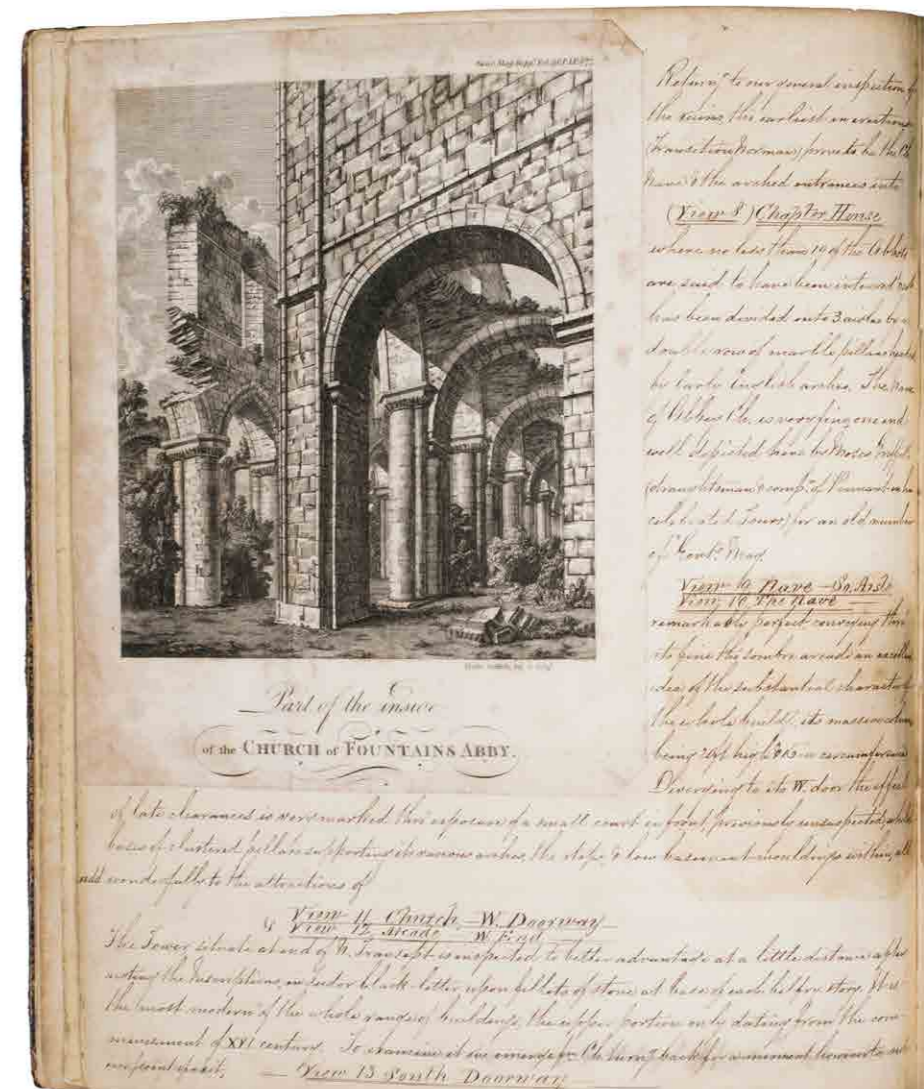 Return.g to our general inspection of
the ruins, the earliest in erection
(Transition Norman) prove to be the Ch.
Nave & the arched entrances into
(View 8) Chapter House
where no less than 19 of the Abbots
are said to have been interred
has been divided into 3 aisles by a
double row of marble pillars
by Early English arches. The Nave
of Abbey Ch. is a very fine one and
well depicted here by Moses Griffith
(draughtsman & comp.n of Pennant in
celebrated Tours) for an old number
of Gent's Mag.
View 9 Nave - So. Aisle
View 10 The Nave
remarkably perfect conveying thro
its fine tho sombre arcade an excellent
idea of the substantial character of
the whole build.g its massive columns
being high & in circumference
Diverging to its W. door the effect
Part of the inside
of the CHURCH of FOUNTAINS ABBY.
of late clearances is very marked thro' exposure of a small court in front, previously unsuspected, while
bases of clustered pillars supporting its various arches, the steps & low basement mouldings within, all
add wonderfully to the attractions of
View 11 Church - W. Doorway
& View 12 - W. End
The Tower situate at end of N. Transept is inspected to better advantage at a little distance after
noting the Inscriptions, in Tudor black-letter upon fillets of stone at base of each belfry story. It is
the most modern of the whole range of buildings, the upper portion only dating from the com-
mencement of XVI century. To examine it we emerge fr. Ch. turn.g back for a moment towards
point of exit,
View 13 South Doorway